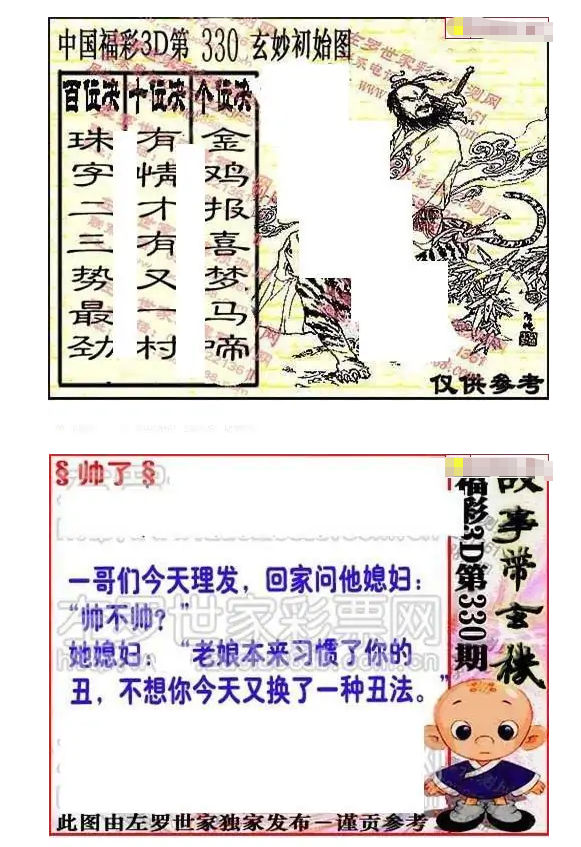 中国福彩3D第 330 玄妙初始图
百位决 十位决 个位决
珠字二三势最劲
有情才有又一村
金鸡报喜梦马啼
仅供参考
§帅了§
一哥们今天理发，回家问他媳妇：
“帅不帅？”
她媳妇：“老娘本来习惯了你的
丑，不想你今天又换了一种丑法。”
故事带玄机
福彩3D第330期
此图由左罗世家独家发布－谨贡参考